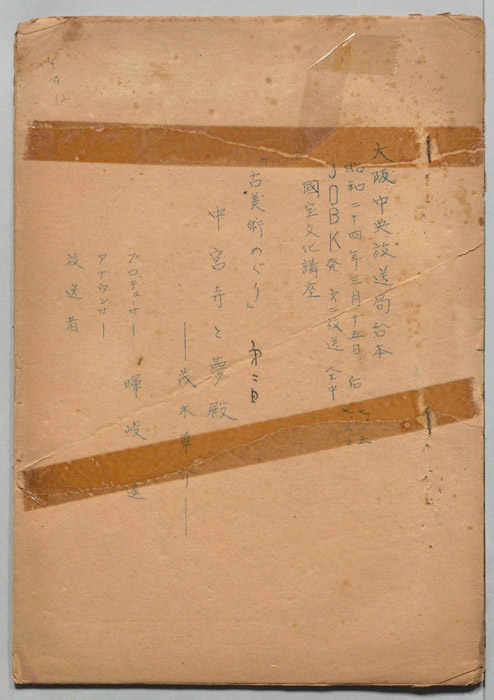 大阪中央放送局台本
昭和二十四年三月十五日 后
JOBK発 第二放送 全中
國宝文化講座
「古美術めぐり」 第二日
中宮寺と夢殿
――茂木草介――
プロデューサー 暉峻
アナウンサー
放送者